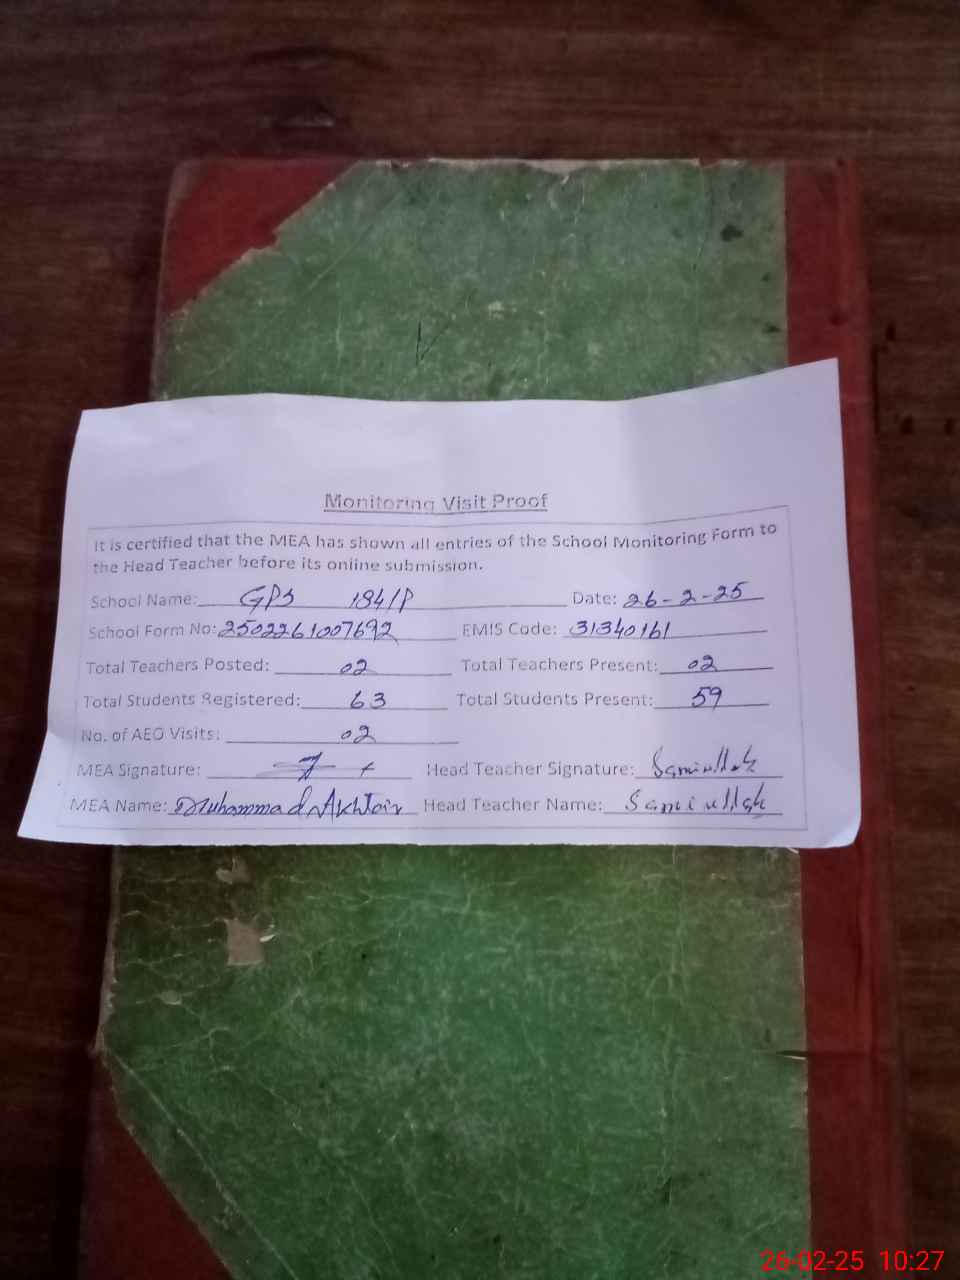 Monitoring Visit Proof
It is certified that the MEA has shown all entries of the School Monitoring Form to
the Head Teacher before its online submission.
School Name: GPS 184/P Date: 26-2-25
School Form No: 2502261007692 EMIS Code: 31340161
Total Teachers Posted: 02 Total Teachers Present: 02
Total Students Registered: 63 Total Students Present: 59
No. of AEO Visits: 02
MEA Signature: Head Teacher Signature: Samiullah
MEA Name: Muhammad Akhtar Head Teacher Name: Samiullah
26-02-25 10:27